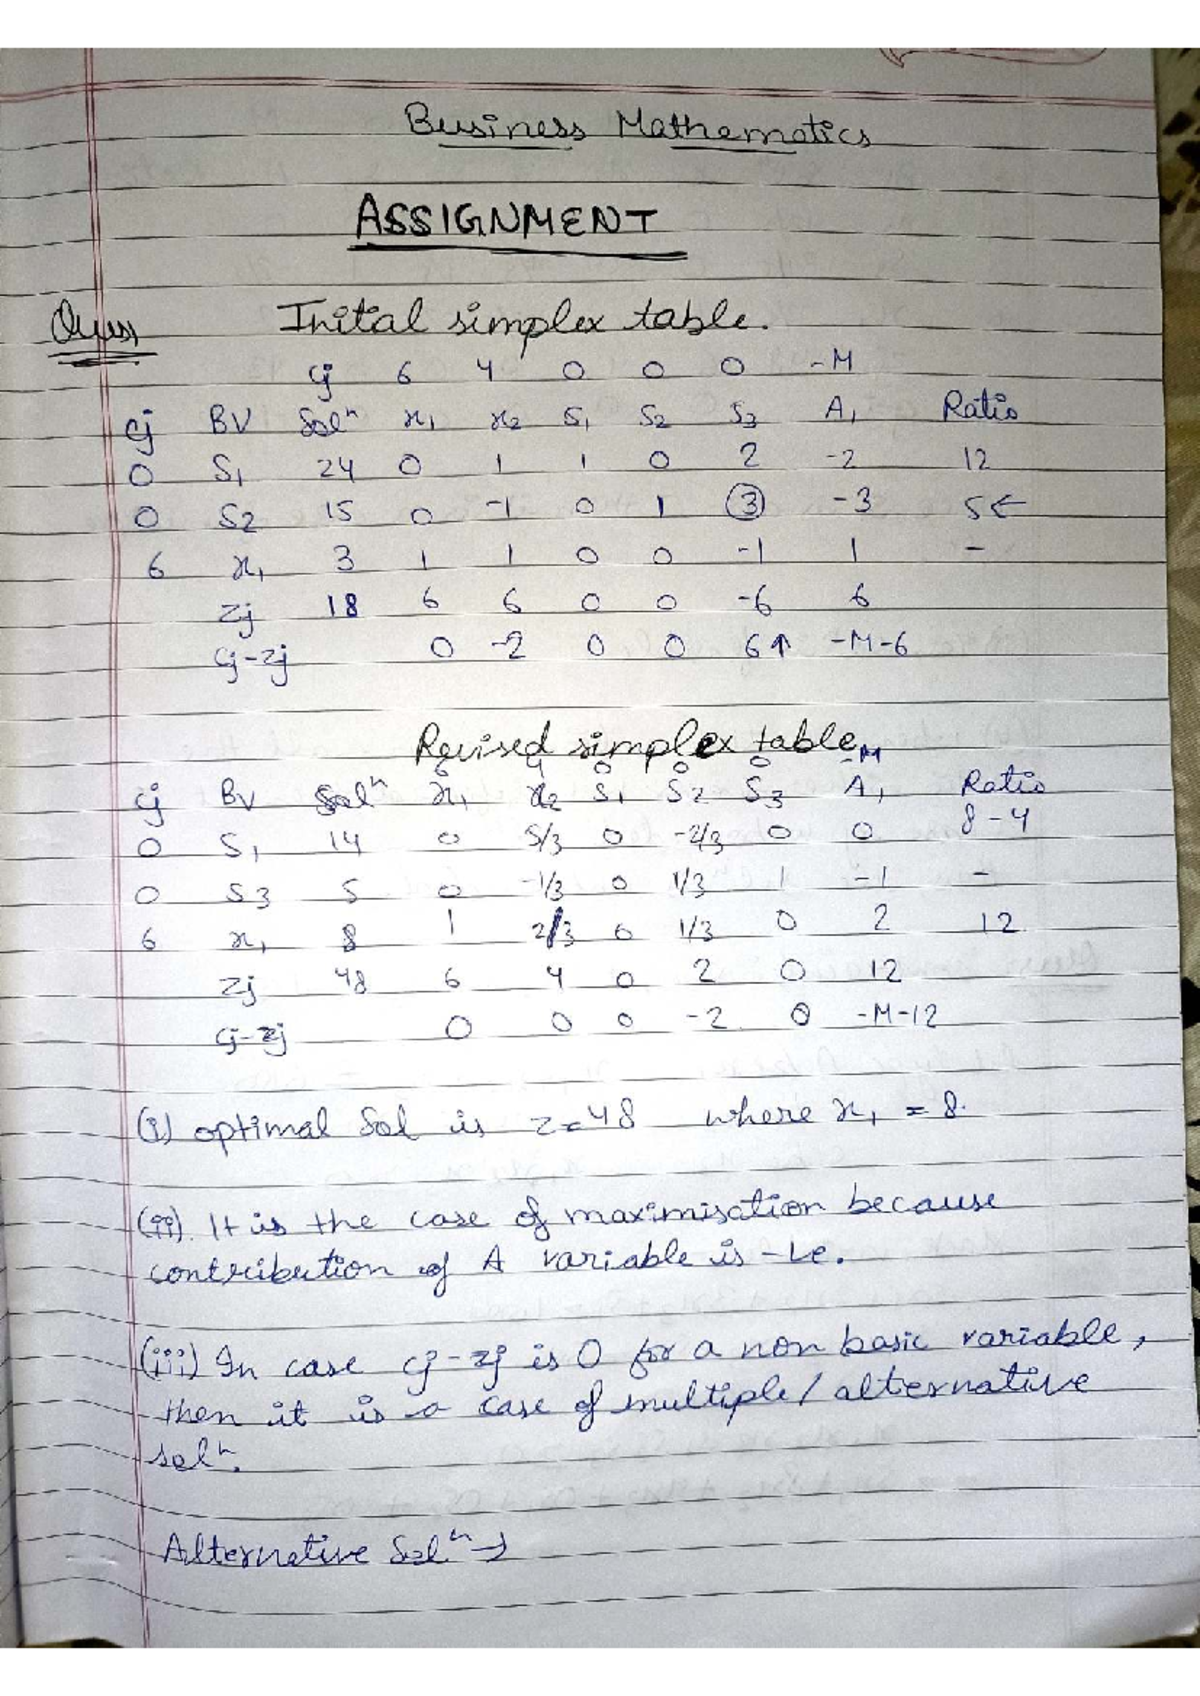 Business Mathematics
ASSIGNMENT
Ques Inital simplex table.
Cj 6 4 0 0 0 -M
Cj BV Solⁿ x₁ x₂ S₁ S₂ S₃ A₁ Ratio
0 S₁ 24 0 1 1 0 2 -2 12
0 S₂ 15 0 -1 0 1 3 -3 5←
6 x₁ 3 1 1 0 0 -1 1 -
Zj 18 6 6 0 0 -6 6
Cj-Zj 0 -2 0 0 6↑ -M-6
Revised simplex table
6 4 0 0 0 -M
Cj BV Solⁿ x₁ x₂ S₁ S₂ S₃ A₁ Ratio
0 S₁ 14 0 5/3 0 -2/3 0 0 8-4
0 S₃ 5 0 -1/3 0 1/3 1 -1 -
6 x₁ 8 1 2/3 0 1/3 0 2 12
Zj 48 6 4 0 2 0 12
Cj-Zj 0 0 0 -2 0 -M-12
(i) optimal Sol is Z=48 where x₁ = 8.
(ii). It is the case of maximisation because
contribution of A variable is -ve.
(iii) In case Cj-Zj is 0 for a non basic variable,
then it is a case of multiple/alternative
solⁿ.
Alternative Solⁿ→